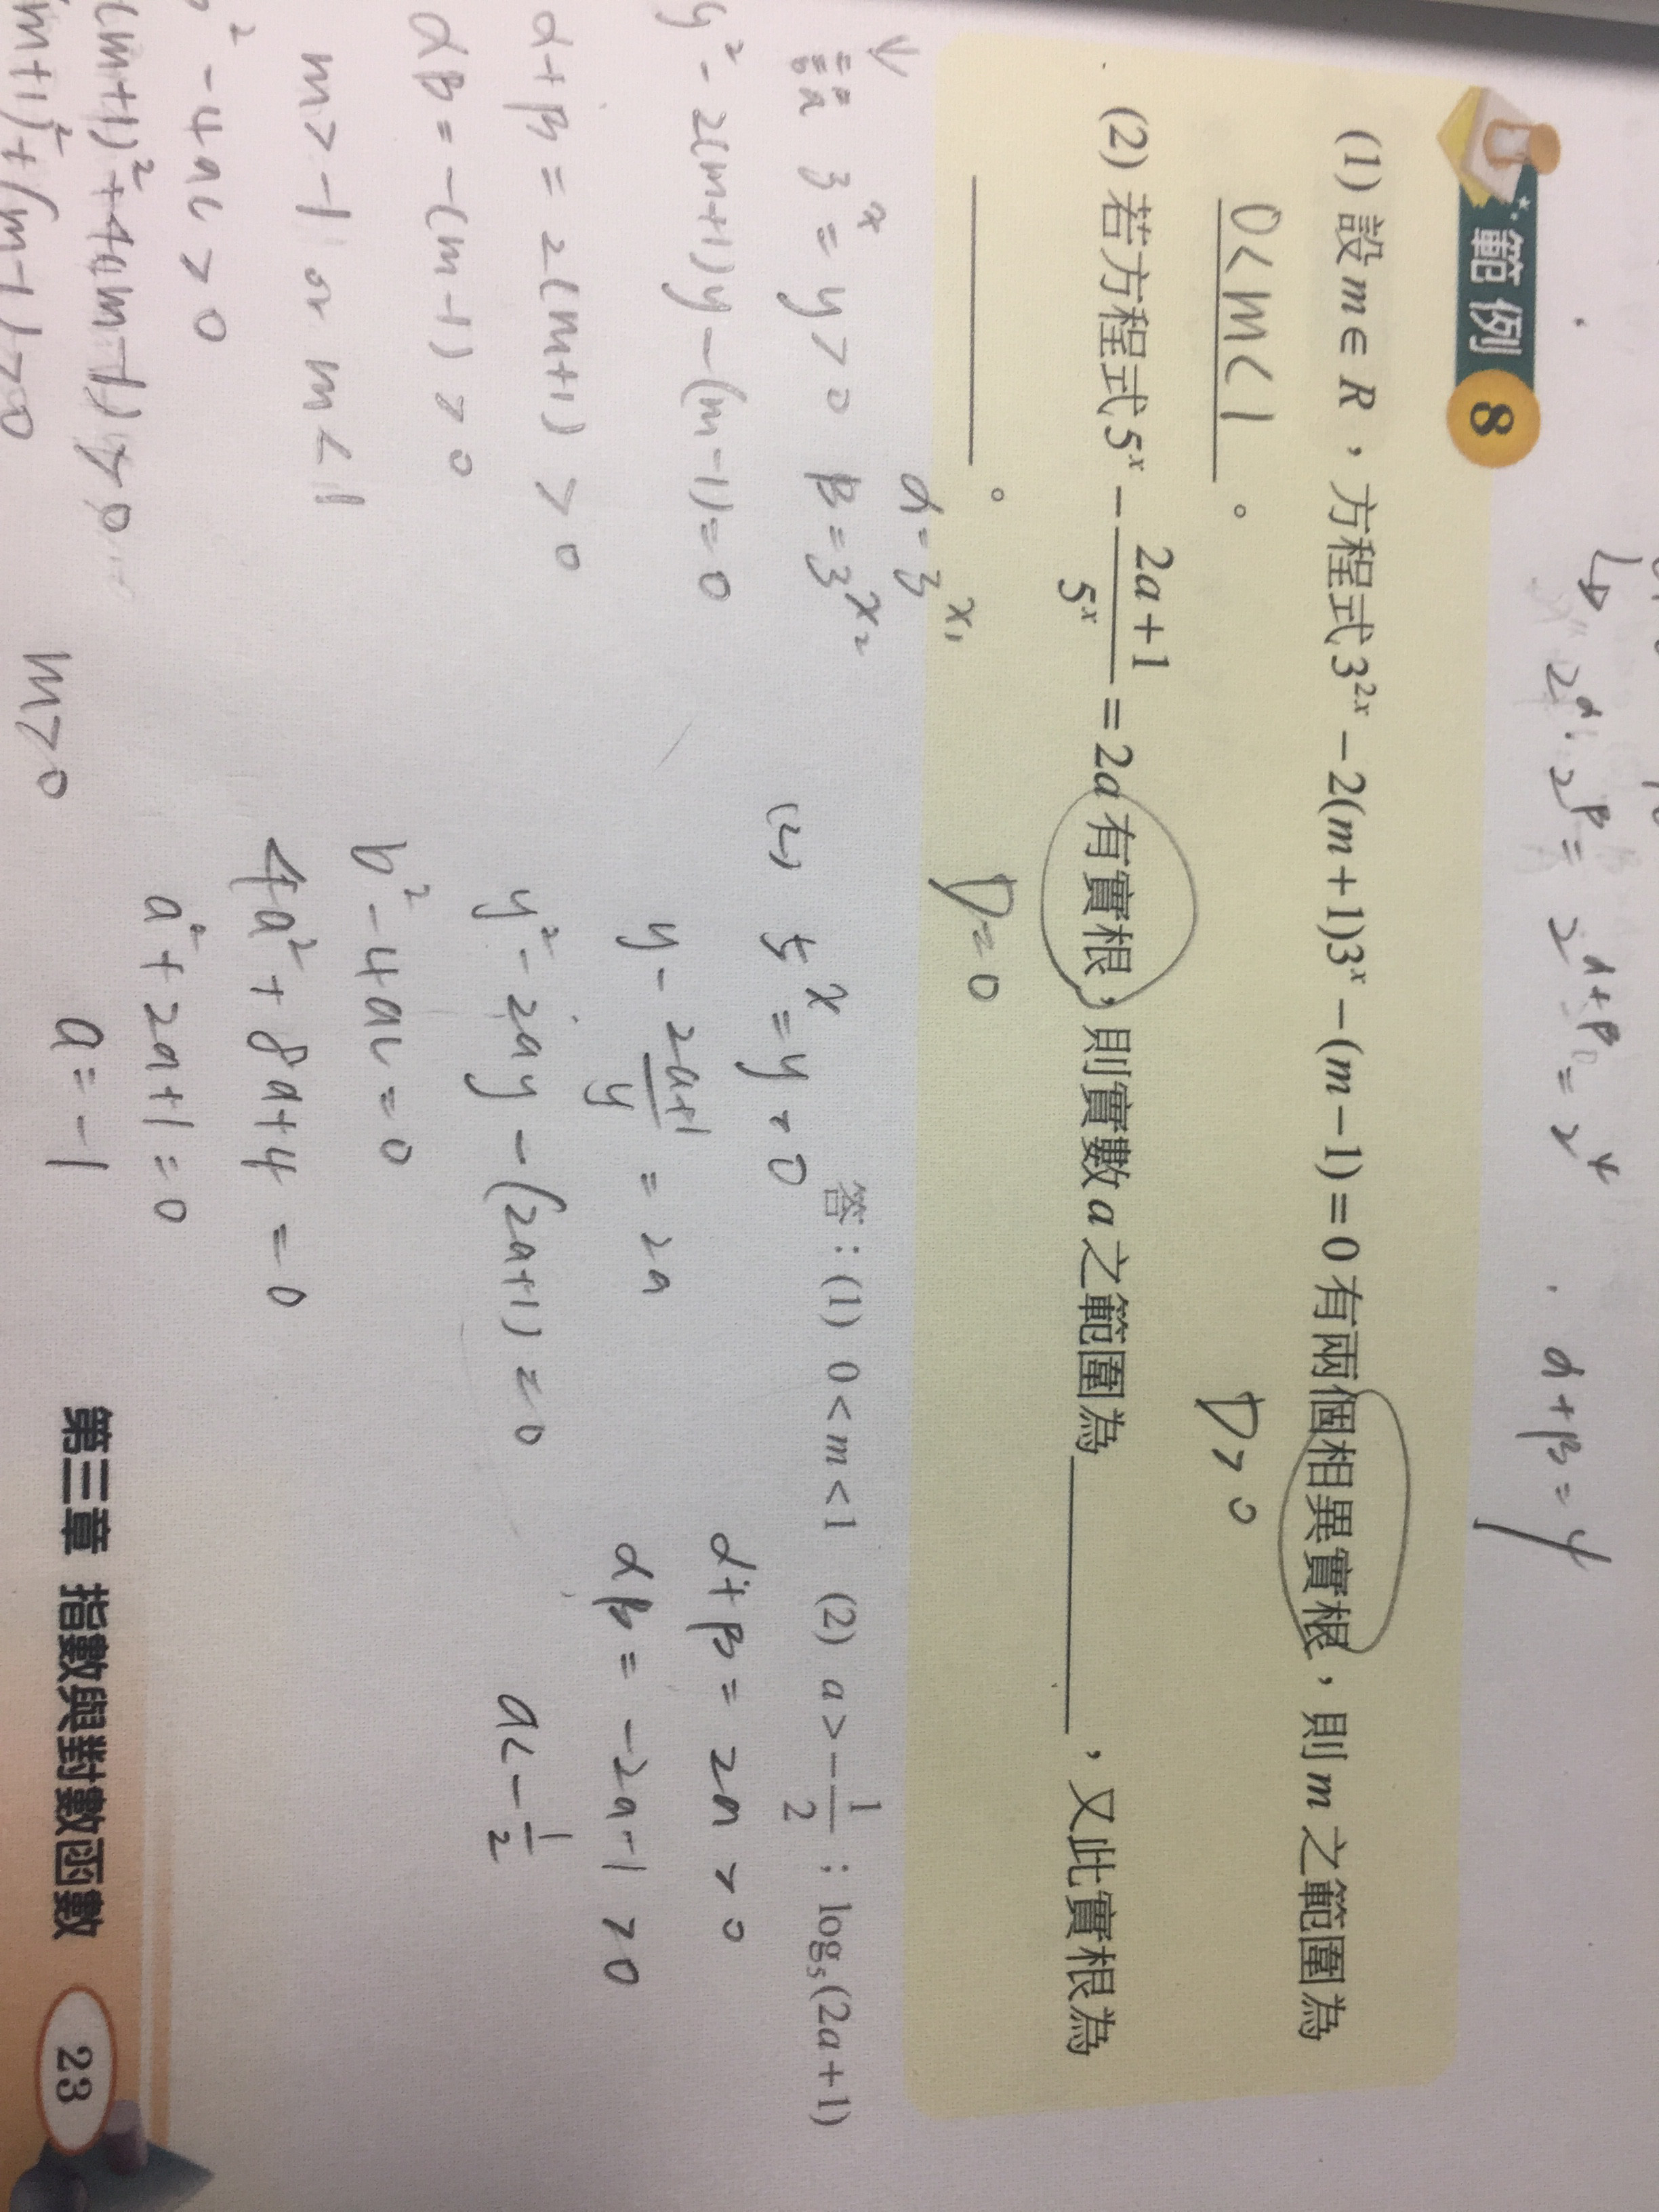 2^α · 2^β = 2^(α+β) = 2^4
α+β=4
範例 8
(1) 設 m∈R，方程式 3^(2x) − 2(m+1)3^x − (m−1) = 0 有兩個相異實根，則 m 之範圍為
0<m<1 。
D>0
(2) 若方程式 5^x − (2a+1)/5^x = 2a 有實根，則實數 a 之範圍為________，又此實根為
________。
D=0
答：(1) 0<m<1 (2) a>−1/2；log_5(2a+1)
α=3^(x1)
3^x = y > 0 β=3^(x2)
y²−2(m+1)y−(m−1)=0
α+β = 2(m+1) > 0
αβ = −(m−1) > 0
m>−1 or m<1
²−4ac>0
(m+1)²+4(m−1)>0
(m+1)²+(m−1)>0
m>0
(2) 5^x = y > 0
y − (2a+1)/y = 2a
y²−2ay−(2a+1)=0
b²−4ac=0
4a²+8a+4=0
a²+2a+1=0
a=−1
α+β = 2a > 0
αβ = −2a−1 > 0
a<−1/2
第三章 指數與對數函數 23